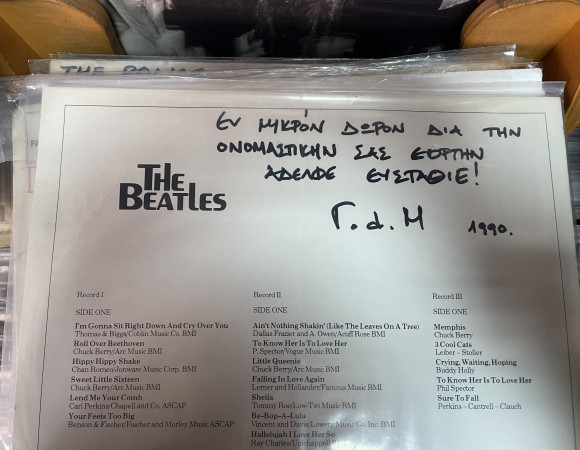 THE
ΕΝ ΜΙΚΡΟΝ ΔΩΡΟΝ ΔΙΑ ΤΗΝ
ΟΝΟΜΑΣΤΙΚΗΝ ΣΑΣ ΕΟΡΤΗΝ
ΑΔΕΛΦΕ ΕΥΣΤΑΘΙΕ!
Γ.d.M 1990.
THE
BEATLES
Record I
SIDE ONE
I'm Gonna Sit Right Down And Cry Over You
Thomas & Biggs/Coblin Music Co. BMI
Roll Over Beethoven
Chuck Berry/Arc Music BMI
Hippy Hippy Shake
Chan Romeo/Jonware Music Corp. BMI
Sweet Little Sixteen
Chuck Berry/Arc Music BMI
Lend Me Your Comb
Carl Perkins/Chapell and Co. ASCAP
Your Feets Too Big
Benson & Fischer/Fischer and Morley Music ASCAP
Record II
SIDE ONE
Ain't Nothing Shakin' (Like The Leaves On A Tree)
Dallas Frazer and A. Owen/Acuff Rose BMI
To Know Her Is To Love Her
P. Spector/Vogue Music BMI
Little Queenie
Chuck Berry/Arc Music BMI
Falling In Love Again
Lerner and Hollander/Famous Music BMI
Sheila
Tommy Roe/Low-Twi Music BMI
Be-Bop-A-Lula
Vincent and Davis/Lowery Music Co. Inc BMI
Hallelujah I Love Her So
Ray Charles/Unichappell
Record III
SIDE ONE
Memphis
Chuck Berry
3 Cool Cats
Leiber - Stoller
Crying, Waiting, Hoping
Buddy Holly
To Know Her Is To Love Her
Phil Spector
Sure To Fall
Perkins - Cantrell - Clauch